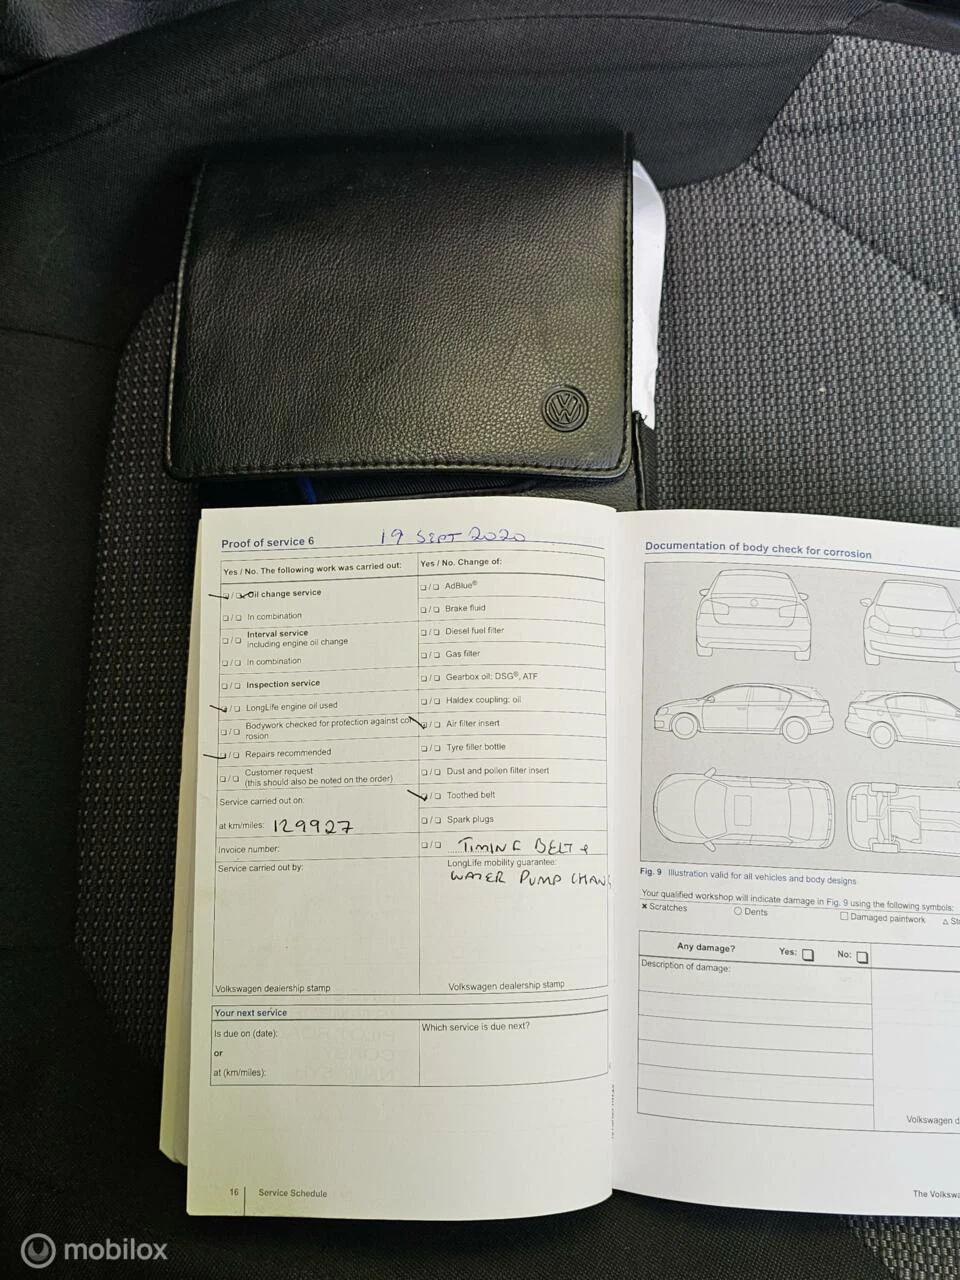 Proof of service 6
19 SEPT 2020
Yes / No. The following work was carried out:
Oil change service
In combination
Interval service
including engine oil change
In combination
Inspection service
LongLife engine oil used
Bodywork checked for protection against cor
rosion
Repairs recommended
Customer request
(this should also be noted on the order)
Service carried out on:
at km/miles: 129927
Invoice number:
Service carried out by:
Volkswagen dealership stamp
Yes / No. Change of:
AdBlue®
Brake fluid
Diesel fuel filter
Gas filter
Gearbox oil: DSG®, ATF
Haldex coupling: oil
Air filter insert
Tyre filler bottle
Dust and pollen filter insert
Toothed belt
Spark plugs
TIMING BELT &
LongLife mobility guarantee:
WATER PUMP CHANG
Volkswagen dealership stamp
Your next service
Is due on (date):
or
at (km/miles):
Which service is due next?
16
Service Schedule
Documentation of body check for corrosion
Fig. 9 Illustration valid for all vehicles and body designs
Your qualified workshop will indicate damage in Fig. 9 using the following symbols:
× Scratches
○ Dents
□ Damaged paintwork
△ St
Any damage?
Yes:
No:
Description of damage:
Volkswagen d
The Volkswa
mobilox